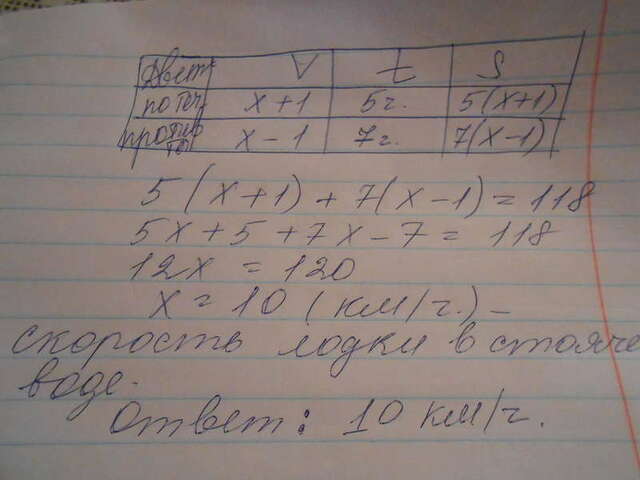 Движ. V t S
по теч. x+1 5ч. 5(x+1)
против x-1 7ч. 7(x-1)
5(x+1)+7(x-1)=118
5x+5+7x-7=118
12x=120
x=10 (км/ч.)-
скорость лодки в стояче
воде.
Ответ: 10 км/ч.